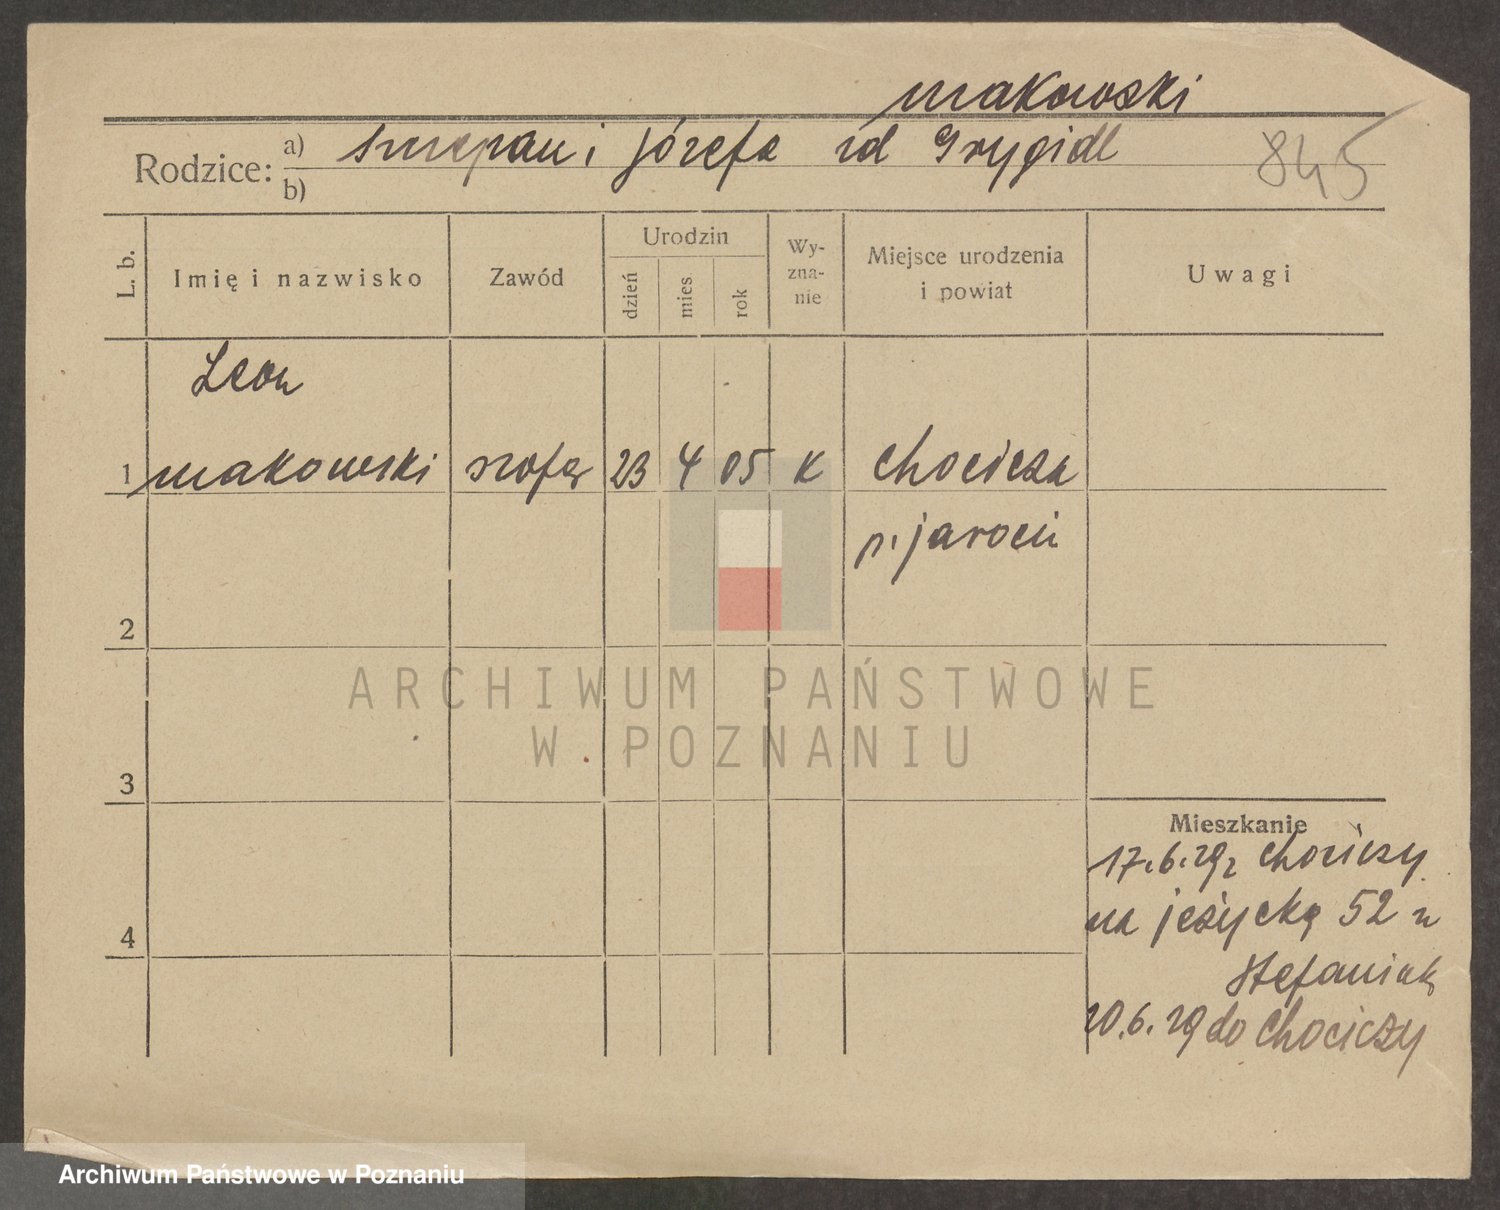 Makowski
Rodzice: a) Szczepan i Józefa zd Grygiel
b)
845
L. b.
Imię i nazwisko
Zawód
Urodzin
dzień
mies
rok
Wy-
zna-
nie
Miejsce urodzenia
i powiat
Uwagi
Leon
1 Makowski szofer 23 4 05 K Chocicza
p. Jarocin
2
3
4
ARCHIWUM PAŃSTWOWE
W POZNANIU
Mieszkanie
17.6.29 z Chociczy
na Jeżycką 52 u
Stefaniak
20.6.29 do Chociczy
Archiwum Państwowe w Poznaniu